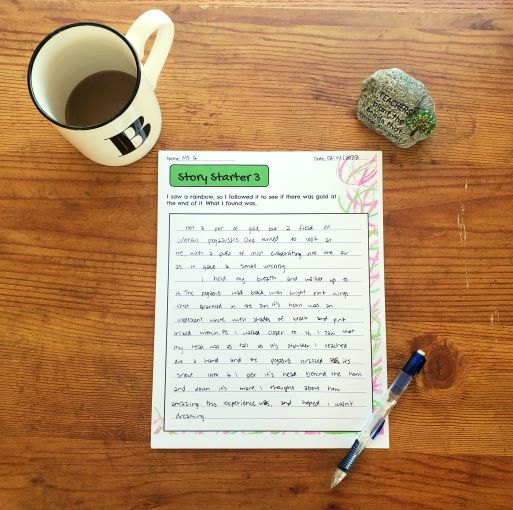 B
TEACHERS
Name: Ms G Date: 02/01/2023
Story Starter 3
I saw a rainbow, so I followed it to see if there was gold at
the end of it. What I found was...
not a pot of gold, but a field of
colorful pegasuses. One turned to look at
me with a puff of mist evaporating into the air
as it gave a small whinny.
I held my breath and walked up to
it. The pegasus was black with bright pink wings
that sparkled in the sun. It's horn was an
iridescent white with shades of black and pink
mixed within. As I walked closer to it, I saw that
my head was as tall as it's shoulder. I reached
out a hand and the pegasus nuzzled it's
snout into it. I pet it's head behind the horn
and down it's mane. I thought about how
amazing this experience was, and hoped I wasn't
dreaming.